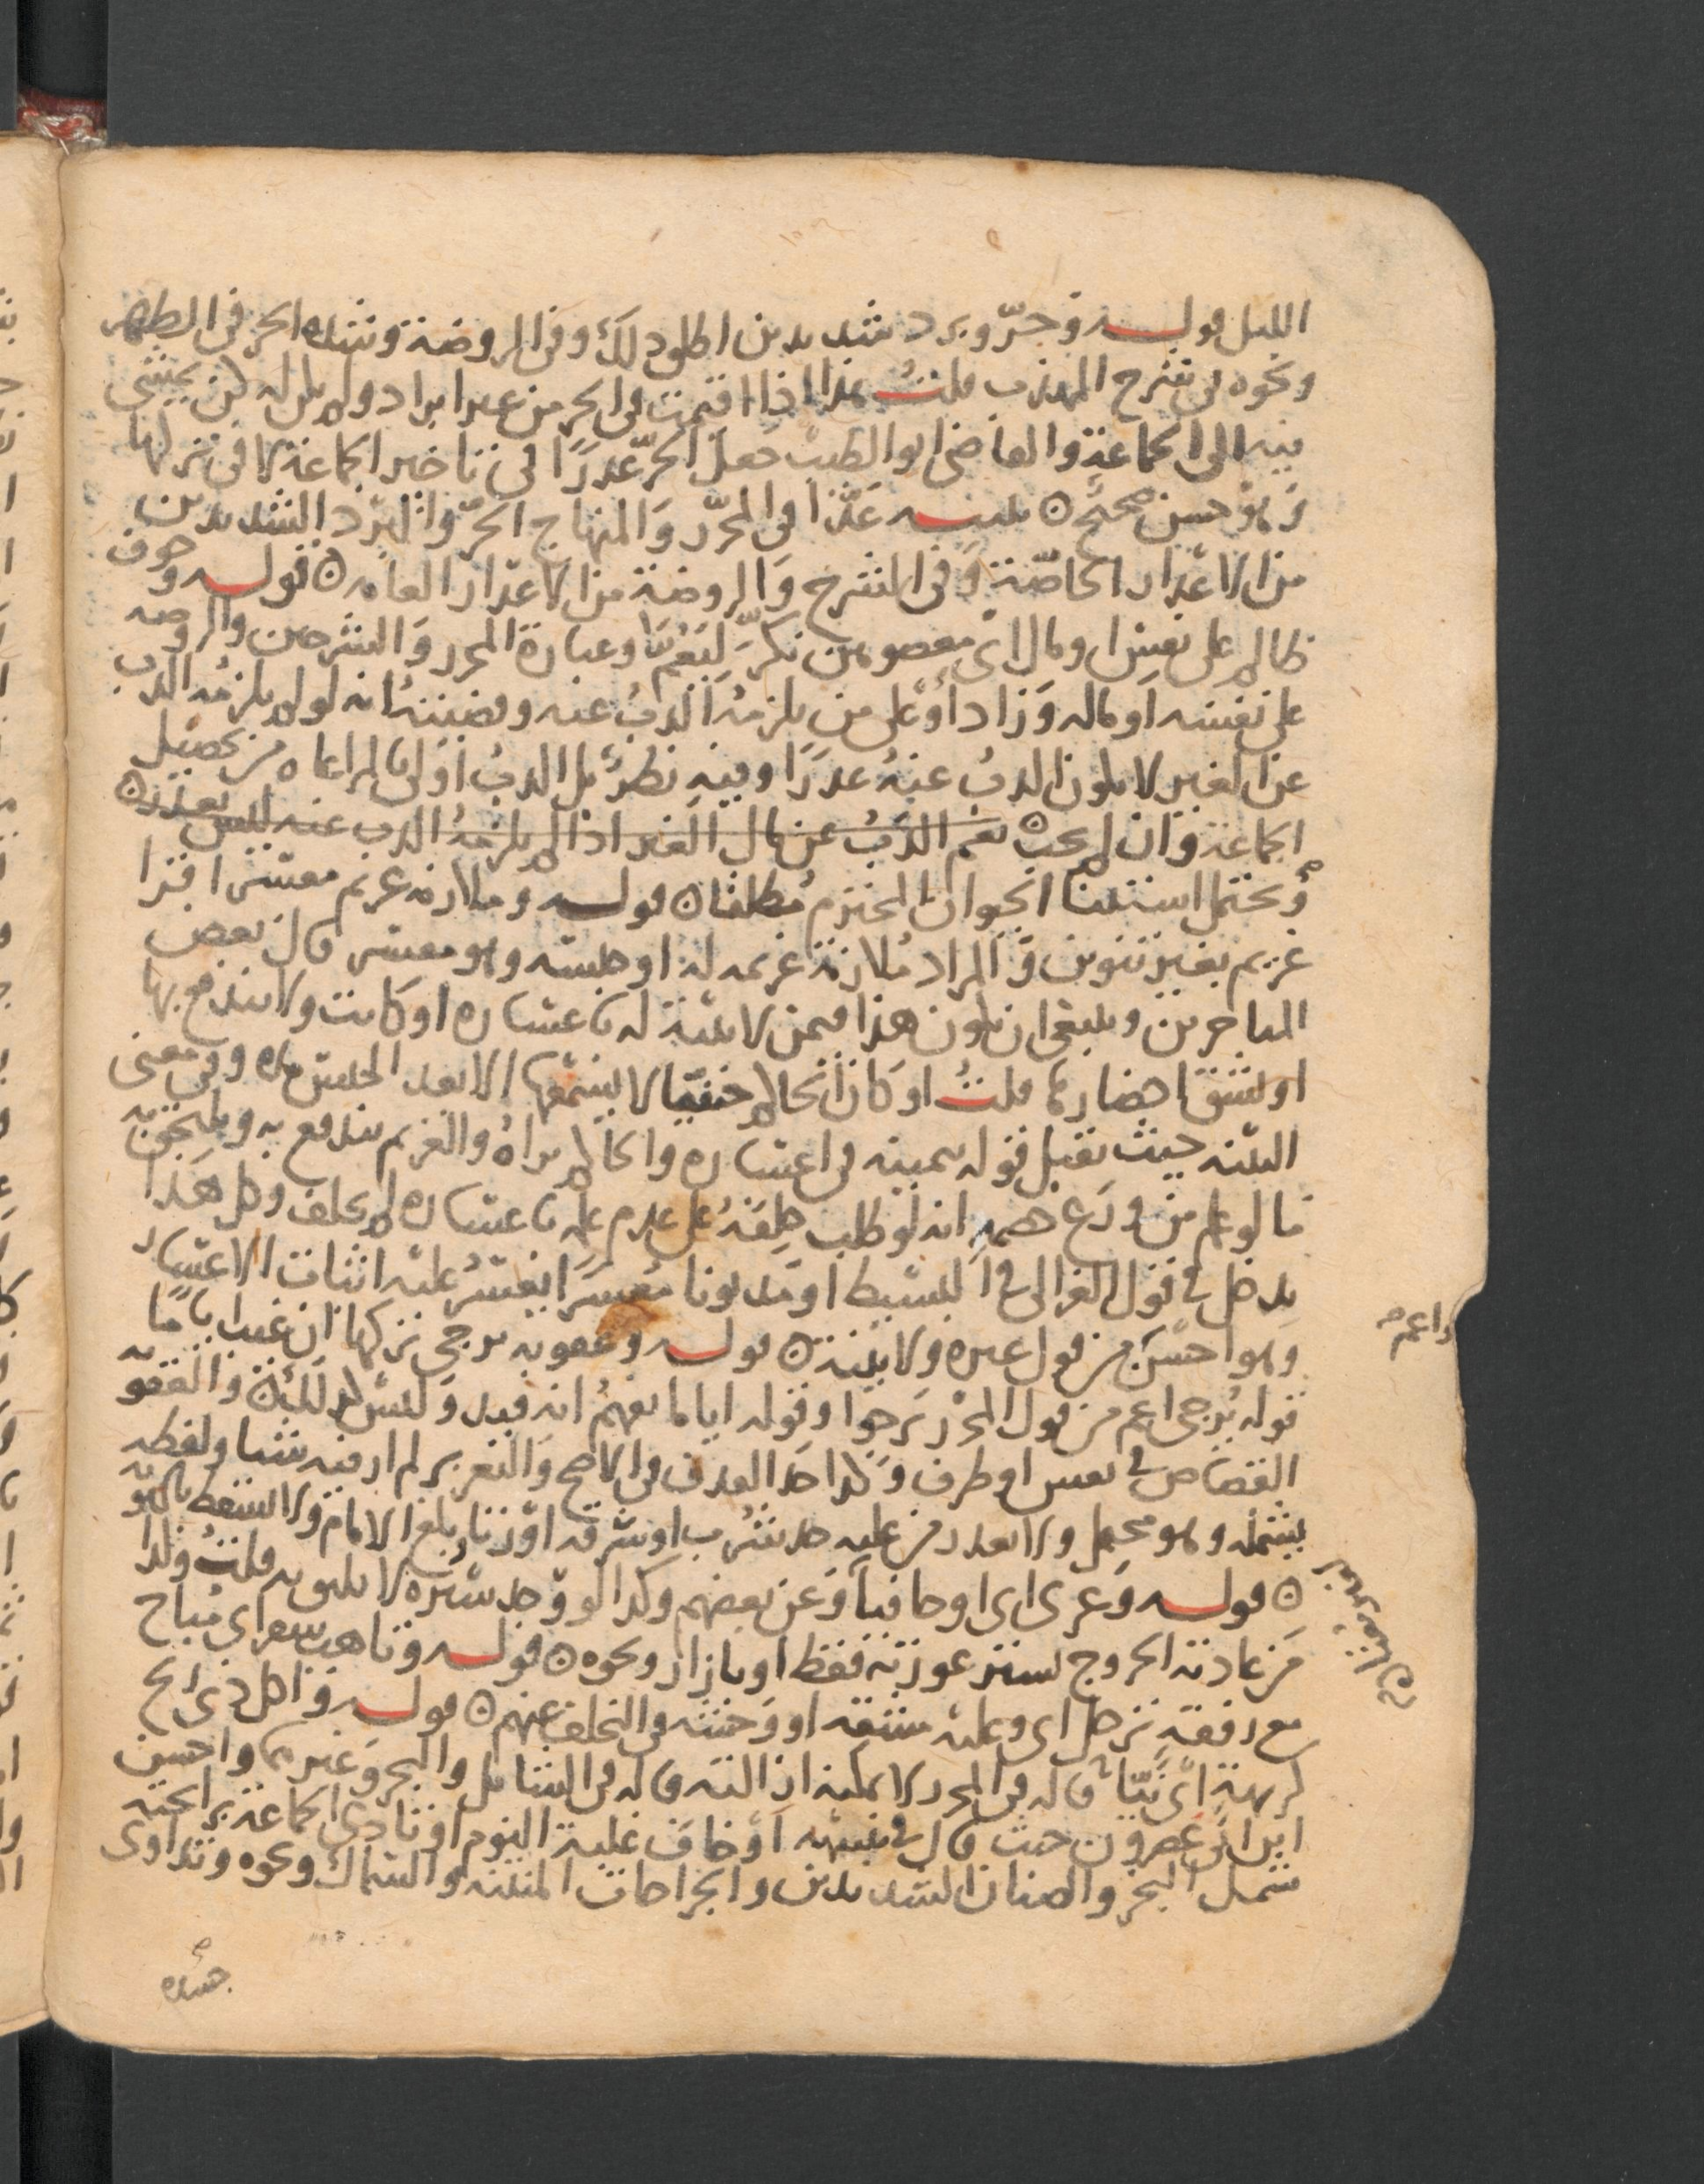 الليل قولـــه وحرّ وبرد شديدين اطلق ذلك وفى الروضة وشدة الحر فى الظهر
ونحوه فى شرح المهذب قلتُ هذا اذا اقيمت فى الحر من غير ابراد ولم يكن له كن يمشى
فيه الى الجماعة والقاضى ابو الطيب جعل الحرّ عذرًا فى تاخير الجماعة لا فى تركها
وَهو حسن صحيح ۞ تنبيـــه عَدّا فى المحرّر وَالمنهاج الحرّ والبرد الشديدين
من الاعذار الخاصّة وَفى الشرح وَالروضة من الاعذار العامه ۞ قولـــه وخوف
ظالم على نفس او مال اى معصومين نكّر ليعُمّا وعبارة المحرر وَالشرحين والروضه
على نفسه او ماله وَزاد اوْ على من يلزمهُ الذبُ عنه وقضيتهُ انه لو لم يلزمه الذب
عن الغير لا يكون الذبُ عنهُ عذرًا وفيه نظرٌ بل الذبُ اولى بالمراعاه من تحصيل
الجماعة وَان لم يجب ۞ نعم الذبُ عن مال الغير اذا لم يلزمهُ الذب عنه ليس بعذر ۞
وَيحتمل استثنا الحيوان المحترم مُطلقا ۞ قولـــه وملازمة غريم معسر اقرا
غريم بغير تنوين وَالمراد مُلازمة غريمه له او حبسه وهو معسر قال بعض
المتاخرين وينبغى ان يكون هذا فيمن لا بيّنة له باعساره او كانت ولا يندفع بها
او يشق احضارها قلتُ او كان الحاكم حنفيّا لا يسمعها الا بعد الحبس مدة وفى معنى
البيّنه حيث نقبل قوله بيمينه فى اعساره والحاكم يراهُ والغريم يندفع به ويلتحق به
مَا لو علم من وَرَع خصمه انه لو طلب حلِفهُ على عدم علمه باعساره لم يحلف وكل هَذا
يدخل فى قول الغزالى فى البسيط او مديونا مُعسرًا يعسرُ عليه اثبات الاعسار
وهو احسَن من قول غيره ولا بيّنة ۞ قولـــه وعقوبه يرجى تركها ان غيب ايامًا
قوله يُرجى اعم من قول المحرّر يَرجوا وقوله اياما يفهمُ انه قيد وَليس كذلك ۞ والعقوبه
القصَاص فى نفس او طرف وَكذا حَد القذف فى الاصح وَالتعزير لم ار فيه شيا ولفظه
يشمله وهو محتمل ولا يعذر من عليه حد شرب او سَرقه اوْ زنا بلغ الامام وَلا يسقط بالتوبه
۞ قولـــه وَعرى اى او حافيا وَعن بعضهم وكذا لو وَجد سُتره لا يليق به قلتُ ولذا
مَن عادته الخروج بستر عورته فقط او بازار ونحوه ۞ قولـــه وتاهب سفر اى مُباح
مع رفقةٍ ترحل اى وعليه مشقه او وَحشه فى التخلف عنهم ۞ قولـــه وَاكل ذى ريح
كريهةٍ اى نيّا قاله فى المحرر لا يمكنه ازالته قاله فى الشامل والبحر وَغيرهما واحسن
ابن ابى عَصرون حيث قال فى تنبيهه اوْ خاف غلبة النوم او تاذى الجماعة برايحته
شمل البخر والصنان الشديدين والجراحات المنتنه والسّماك ونحوه وتداوى
واعم
جسده